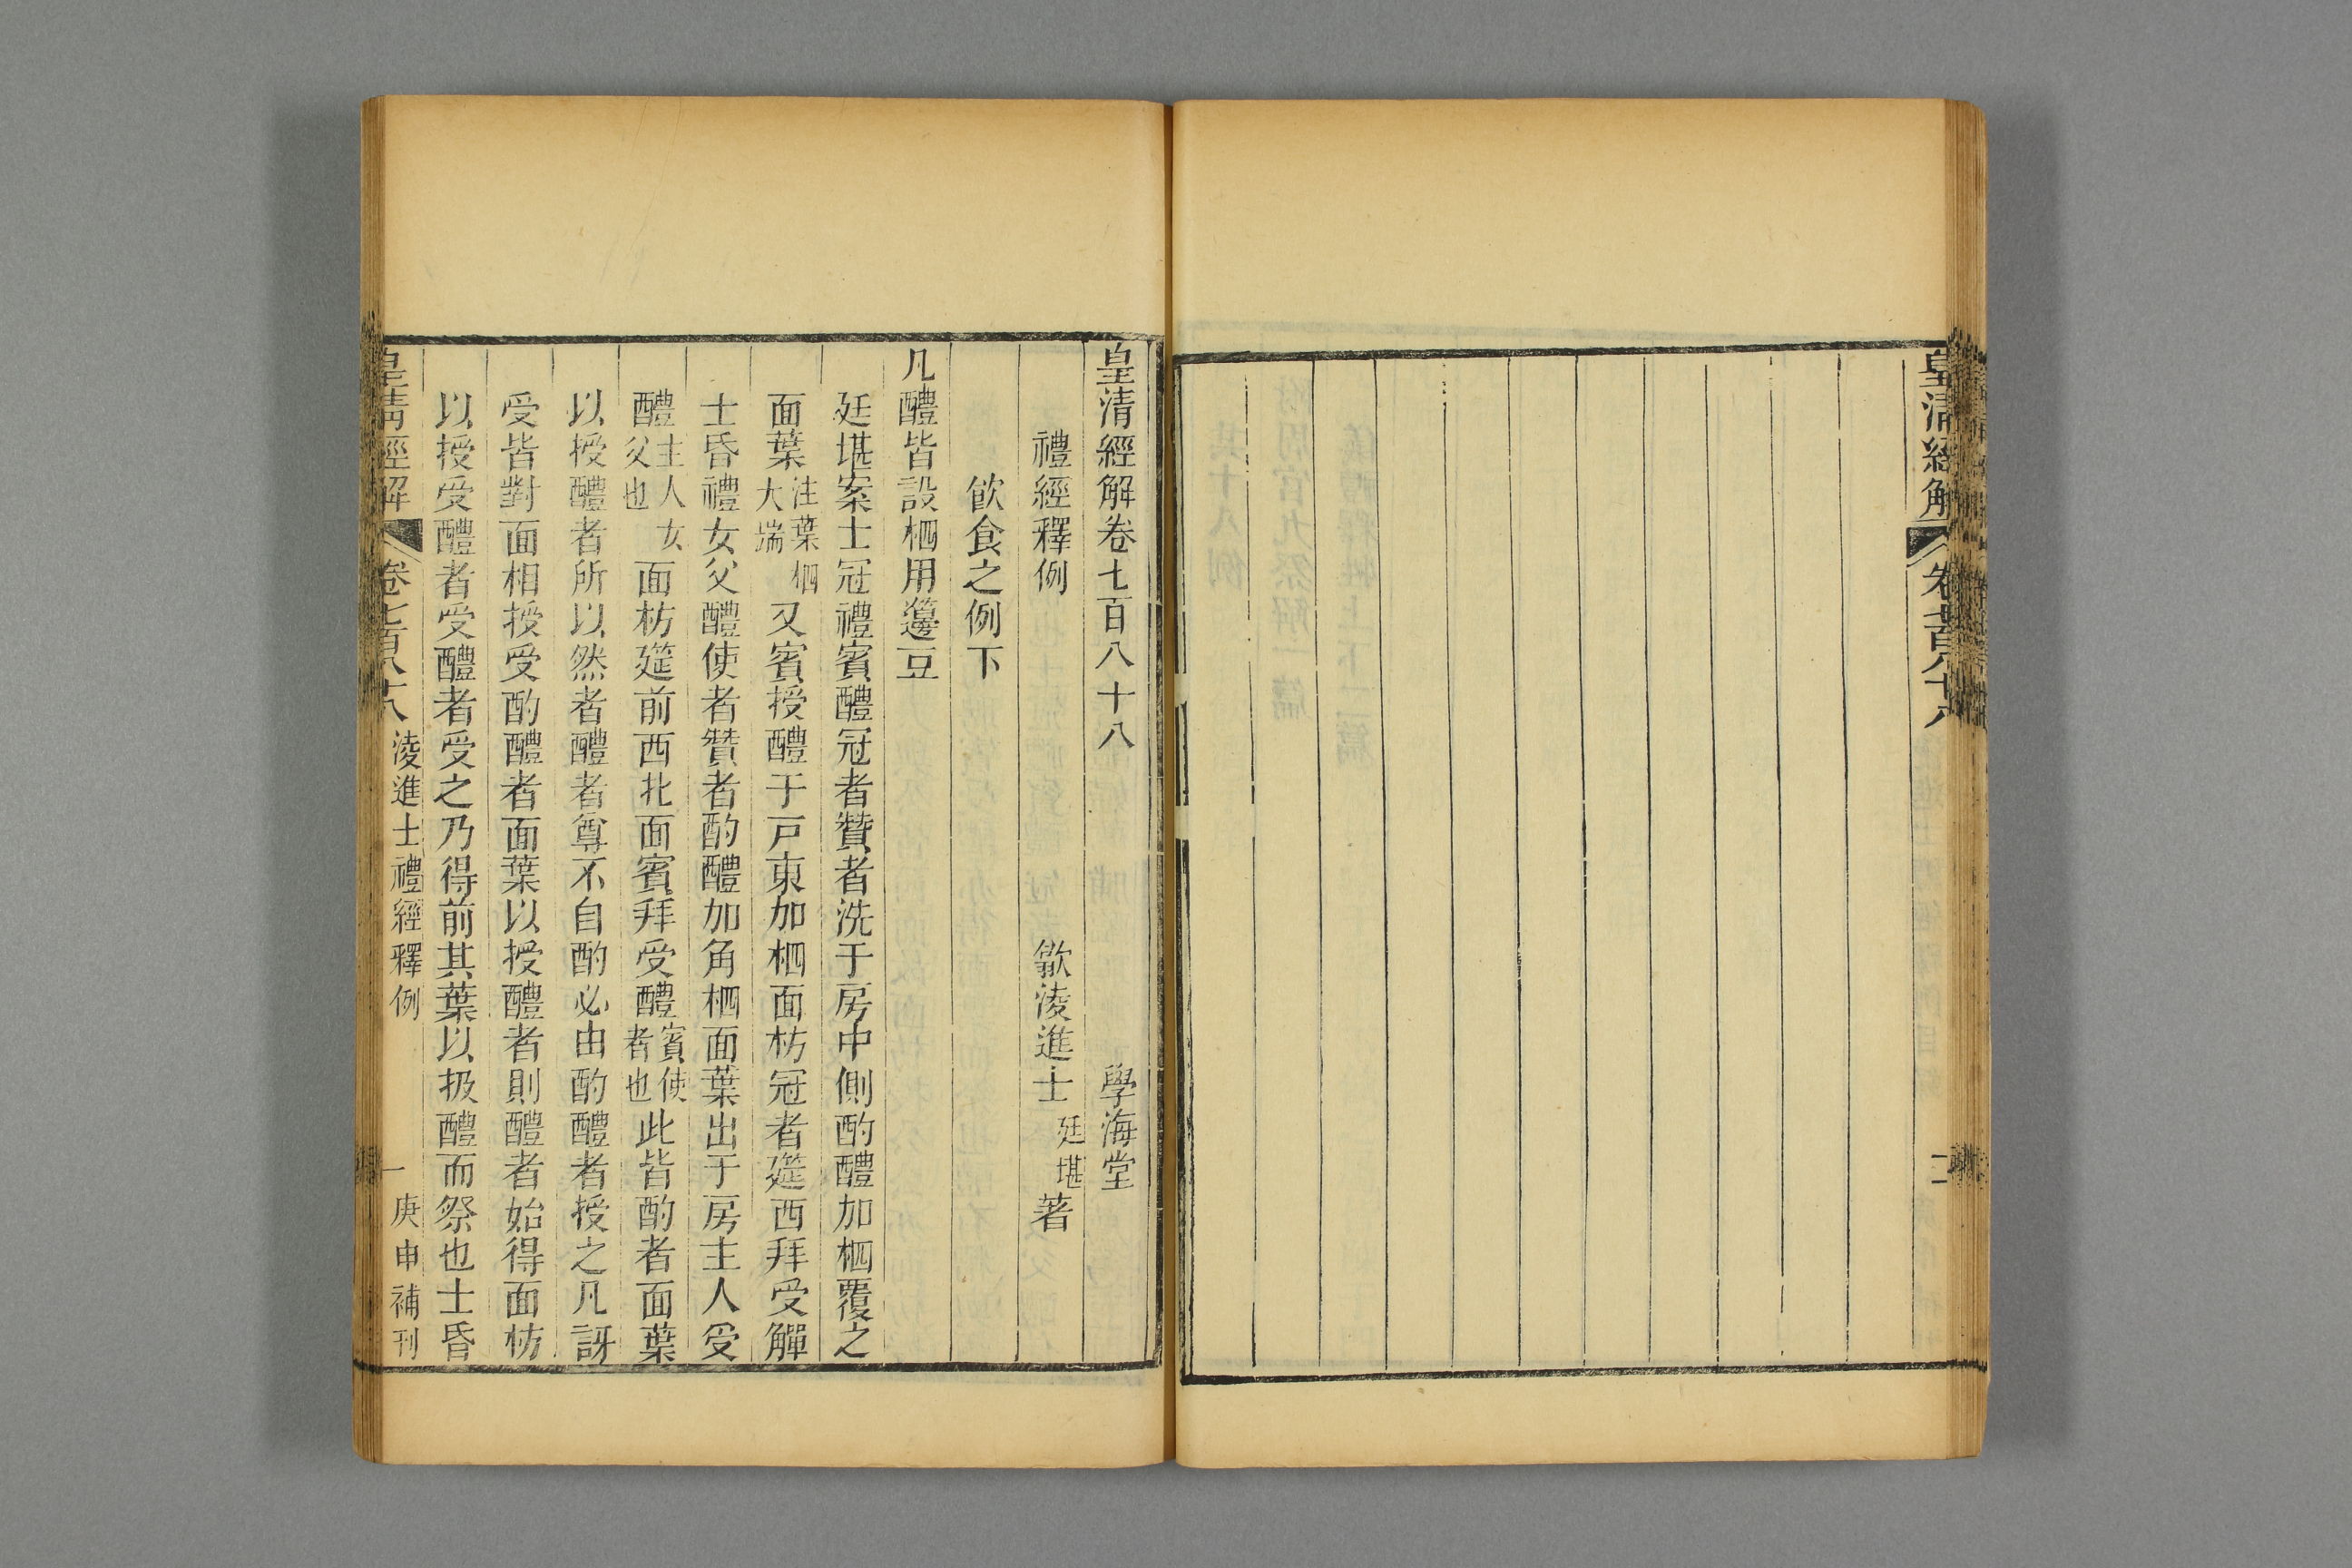 皇清經解 卷七百八十八 二
皇清經解卷七百八十八 學海堂
禮經釋例 歙淩進士廷堪著
飮食之例下
凡醴皆設柶用籩豆
廷堪案士冠禮賓醴冠者贊者洗于房中側酌醴加柶覆之
面葉注葉柶大端又賓授醴于戸東加柶面枋冠者筵西拜受觶
士昏禮女父醴使者贊者酌醴加角柶面葉出于房主人受
醴主人女父也面枋筵前西北面賓拜受醴賓使者也此皆酌者面葉
以授醴者所以然者醴者尊不自酌必由酌醴者授之凡訝
受皆對面相授受酌醴者面葉以授醴者則醴者始得面枋
以授受醴者受醴者受之乃得前其葉以扱醴而祭也士昏
皇清經解 卷七百八十八 淩進士禮經釋例 一 庚申補刊